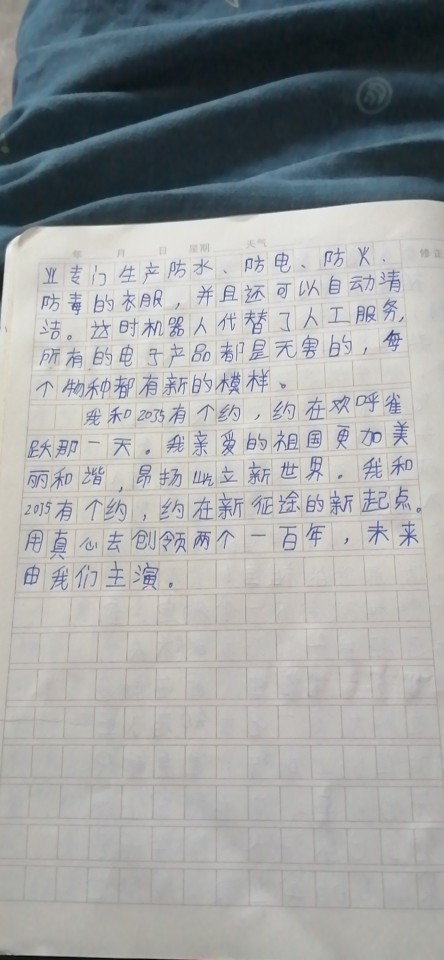 年 月 日 星期 天气
修正
业专门生产防水、防电、防火、
防毒的衣服，并且还可以自动清
洁。这时机器人代替了人工服务，
所有的电子产品都是无害的，每
个物种都有新的模样。
我和2035有个约，约在欢呼雀
跃那一天。我亲爱的祖国更加美
丽和谐，昂扬屹立新世界。我和
2035有个约，约在新征途的新起点。
用真心去创领两个一百年，未来
由我们主演。